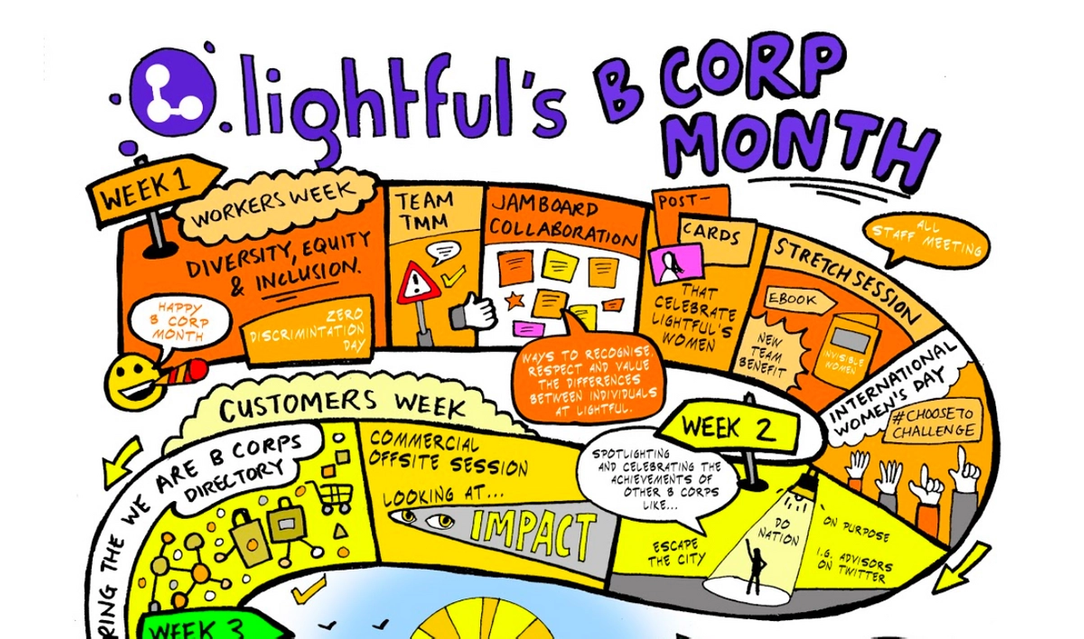 lightful's B CORP
MONTH
WEEK 1
WORKERS WEEK
DIVERSITY, EQUITY
& INCLUSION.
HAPPY
B CORP
MONTH
ZERO
DISCRIMINTATION
DAY
TEAM
TMM
JAMBOARD
COLLABORATION
WAYS TO RECOGNISE,
RESPECT AND VALUE
THE DIFFERENCES
BETWEEN INDIVIDUALS
AT LIGHTFUL.
POST-
CARDS
THAT
CELEBRATE
LIGHTFUL'S
WOMEN
STRETCH SESSION
EBOOK
NEW
TEAM
BENEFIT
INVISIBLE
WOMEN
ALL
STAFF MEETING
INTERNATIONAL
WOMEN'S DAY
#CHOOSETO
CHALLENGE
WEEK 2
CUSTOMERS WEEK
SPOTLIGHTING
AND CELEBRATING THE
ACHIEVEMENTS OF
OTHER B CORPS
LIKE...
ON PURPOSE
I.G. ADVISORS
ON TWITTER
DO
NATION
ESCAPE
THE CITY
COMMERCIAL
OFFSITE SESSION
LOOKING AT...
IMPACT
RING THE WE ARE B CORPS
DIRECTORY
WEEK 3